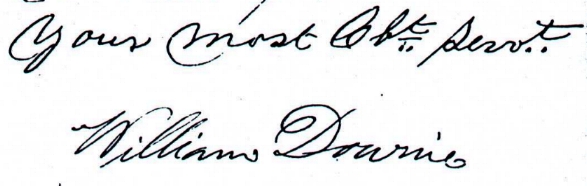 Your most Obt. Servt.
William Downie